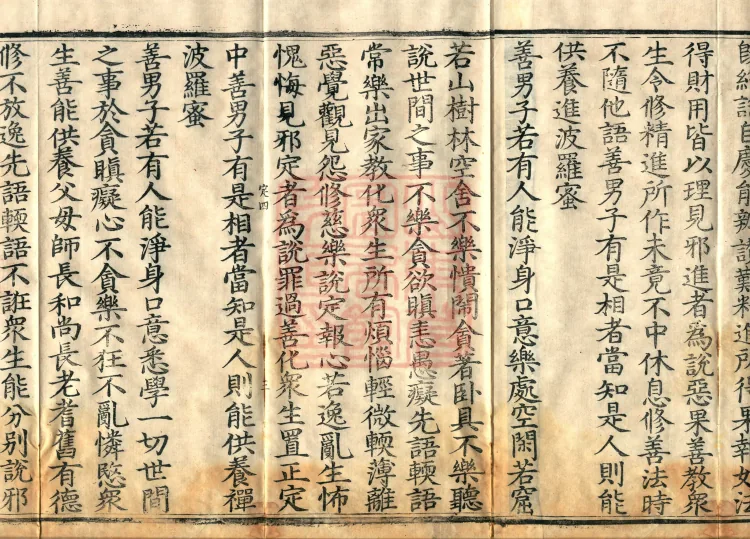 得財用皆以理見邪進者為說惡果善教衆
生令修精進所作未竟不中休息修善法時
不隨他語善男子有是相者當知是人則能
供養進波羅蜜
善男子若有人能淨身口意樂處空閑若窟
若山樹林空舍不樂憒閙貪著卧具不樂聽
說世間之事不樂貪欲瞋恚愚癡先語輭語
常樂出家教化衆生所有煩惱輕微輭薄離
惡覺觀見怨修慈樂說定報心若逸亂生怖
愧悔見邪定者為說罪過善化衆生置正定
三
中善男子有是相者當知是人則能供養禪
波羅蜜
善男子若有人能淨身口意悉學一切世間
之事於貪瞋癡心不貪樂不狂不亂憐愍衆
生善能供養父母師長和尚長老耆舊有德
修不放逸先語輭語不誑衆生能分別說邪